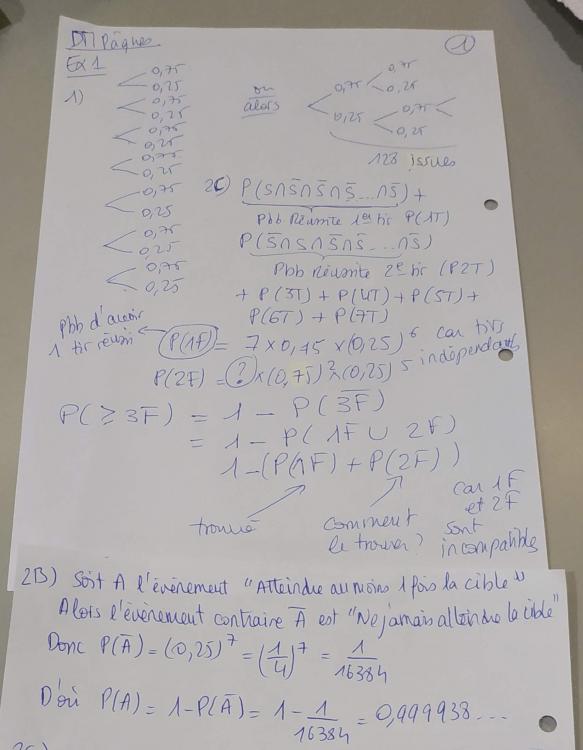 DM Pâques
1
Ex 1
1)
0,75
0,25
0,75
0,25
0,75
0,25
0,75
0,25
0,75
0,25
0,75
0,25
0,75
0,25
ou alors
0,75
0,75
0,25
0,25
0,75
0,25
128 issues
2C) P(S∩S̄∩S̄∩S̄...∩S̄) +
Pbb Réussite 1er tir P(1T)
P(S̄∩S∩S̄∩S̄...∩S̄)
Pbb Réussite 2e tir (P2T)
+ P(3T) + P(4T) + P(5T) +
P(6T) + P(7T)
Pbb d'avoir
1 tir réussi
P(1F) = 7 × 0,75 × (0,25)⁶ car tirs
indépendants
P(2F) = ? × (0,75)² × (0,25)⁵
P(≥3F) = 1 - P(3̅F̅)
= 1 - P(1F ∪ 2F)
1 - (P(1F) + P(2F))
trouvé
comment
le trouver ?
car 1F
et 2F
sont
incompatibles
2B) Soit A l'évènement "Atteindre au moins 1 fois la cible"
Alors l'évènement contraire Ā est "Ne jamais atteindre la cible"
Donc P(Ā) = (0,25)⁷ = (1/4)⁷ = 1/16384
D'où P(A) = 1 - P(Ā) = 1 - 1/16384 = 0,999938...